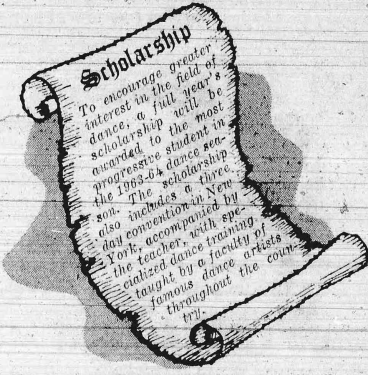 Scholarship
To encourage greater
interest in the field of
dance, a full year's
scholarship will be
awarded to the most
progressive student in
the 1963-64 dance sea-
son. The scholarship
also includes a three
day convention in New
York, accompanied by
the teacher, with spe-
cialized dance training
taught by a faculty of
famous dance artists
throughout the coun-
try.